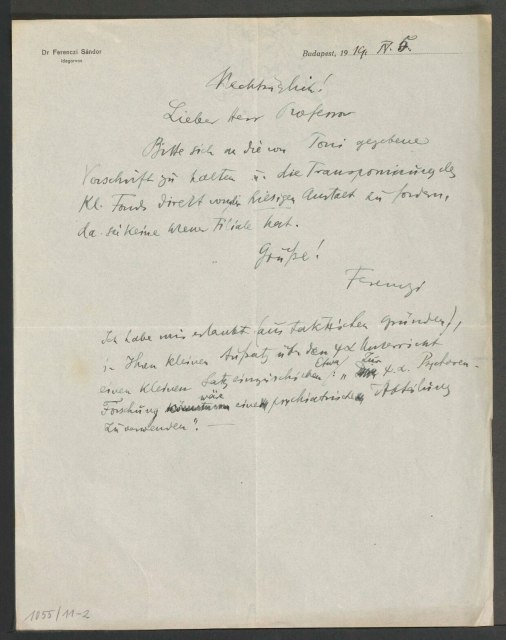 Dr Ferenczi Sándor
idegorvos
Budapest, 19 19. IV. 5.
Nachträglich!
Lieber Herr Professor
Bitte sich an die von Toni gegebene
Vorschrift zu halten u. die Transponierung des
Kl. Fonds direkt von der hiesigen Anstalt zu fordern,
da sie keine Wiener Filiale hat.
Grüße!
Ferenczi
Ich habe mir erlaubt (aus taktischen Gründen),
in Ihren kleinen Aufsatz über den ψα Unterricht
einen kleinen Satz einzuschieben:
Etwa
„ Zur ψ.α. Psychosen-
Forschung wäre eine psychiatrische Abteilung
zu verwenden“. —
1055/11-2